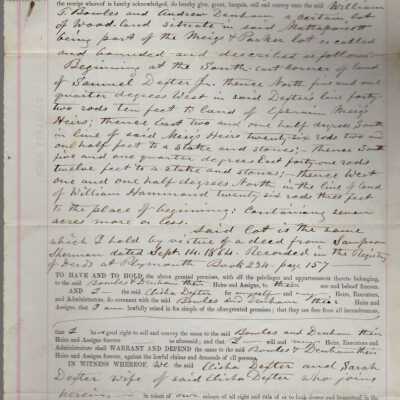 the receipt whereof is hereby acknowledged, do hereby give, grant, bargain, sell and convey unto the said William
T. Bowles and Andrew Denham a certain lot
of Wood land situate in said Mattapoisett
being part of the Meigs & Parker lot so called
and bounded and described as follows.
Beginning at the South-east corner of land
of Samuel Dexter Jr. thence North five and one
quarter degrees West in said Dexters line forty-
two rods ten feet to land of Ephraim Meigs
Heirs; thence East two and one half degrees South
in line of said Meigs Heirs twenty-six rods two and
one half feet to a stake and stones;- thence South
five and one quarter degrees East forty-one rods
twelve feet to a stake and stones;- thence West
one and one half degrees North in the line of land
of William Hammond twenty six rods three feet
to the place of beginning: Containing seven
acres more or less.
Said lot is the same
which I hold by virtue of a deed from Sampson
Sherman dated Sept. 14. 1864. Recorded in the Registry
of Deeds at Plymouth Book 234 page 157
TO HAVE AND TO HOLD the above granted premises, with all the privileges and appurtenances thereto belonging,
to the said Bowles & Denham their Heirs and Assigns, to their use and behoof forever.
AND I the said Elisha Dexter for myself and my Heirs, Executors,
and Administrators, do covenant with the said Bowles and Denham their Heirs and
Assigns, that I am lawfully seized in fee simple of the afore-granted premises; that they are free from all incumbrances,
that I have good right to sell and convey the same to the said Bowles and Denham their
Heirs and Assigns forever as aforesaid; and that I will and my Heirs, Executors, and
Administrators shall WARRANT AND DEFEND the same to the said Bowles & Denham their
Heirs and Assigns forever, against the lawful claims and demands of all persons.
IN WITNESS WHEREOF, We the said Elisha Dexter and Sarah
Dexter wife of said Elisha Dexter who joins
herein in token of our release of all right and title of or to both dower and homestead in the